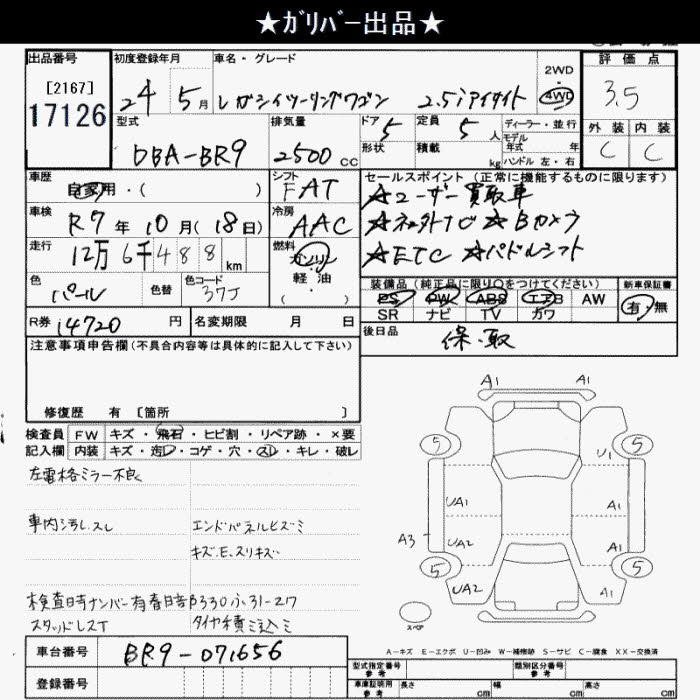 ★ｶﾞﾘﾊﾞｰ出品★
出品番号
[2167]
17126
初度登録年月
24年 5月
車名・グレード
レガシィツーリングワゴン 2.5iアイサイト
2WD
4WD
評価点
3.5
外装 内装
C C
型式
DBA-BR9
排気量
2500 CC
ドア 5
形状
定員 5人
積載 kg
ディーラー・並行
モデル年式 年
ハンドル 左・右
車歴
自家用・( )
シフト
FAT
車検
R7年10月(18日)
冷房
AAC
走行
12万6千488km
燃料
ガソリン
軽・油
( )
色
パール
色替
色コード
37J
R券 14720 円
名変期限 月 日
セールスポイント(正常に機能するものに限ります)
☆ユーザー買取車
☆ネット外ナビ ☆Bカメラ
☆ETC ☆パドルシフト
装備品(純正品に限り○をつけてください)
PS PW ABS エアB AW
SR ナビ TV カワ
新車保証書
有・無
後日品
保・取
注意事項申告欄(不具合内容等は具体的に記入して下さい)
修復歴 有 [箇所 ]
検査員記入欄
FW キズ・飛石・ヒビ割・リペア跡・×要
内装 キズ・汚レ・コゲ・穴・スレ・キレ・破レ
左電格ミラー不良
車内汚レ、スレ
エンドパネルヒズミ
キズ、E、スリキズ
検査日時ナンバー有春日部330ふ31-27
スタッドレスT
タイヤ積ミ込ミ
車台番号 BR9-071656
登録番号
A1 A1
5 5
U1
UA1 A1
A3 UA2 A1
5 5
UA2 A1
スペア
A-キズ E-エクボ U-凹み W-補修跡 S-サビ C-腐食 XX-交換済
型式指定番号
参考
類別区分番号
参考
車庫証明用
参考
長さ cm 幅 cm 高さ cm